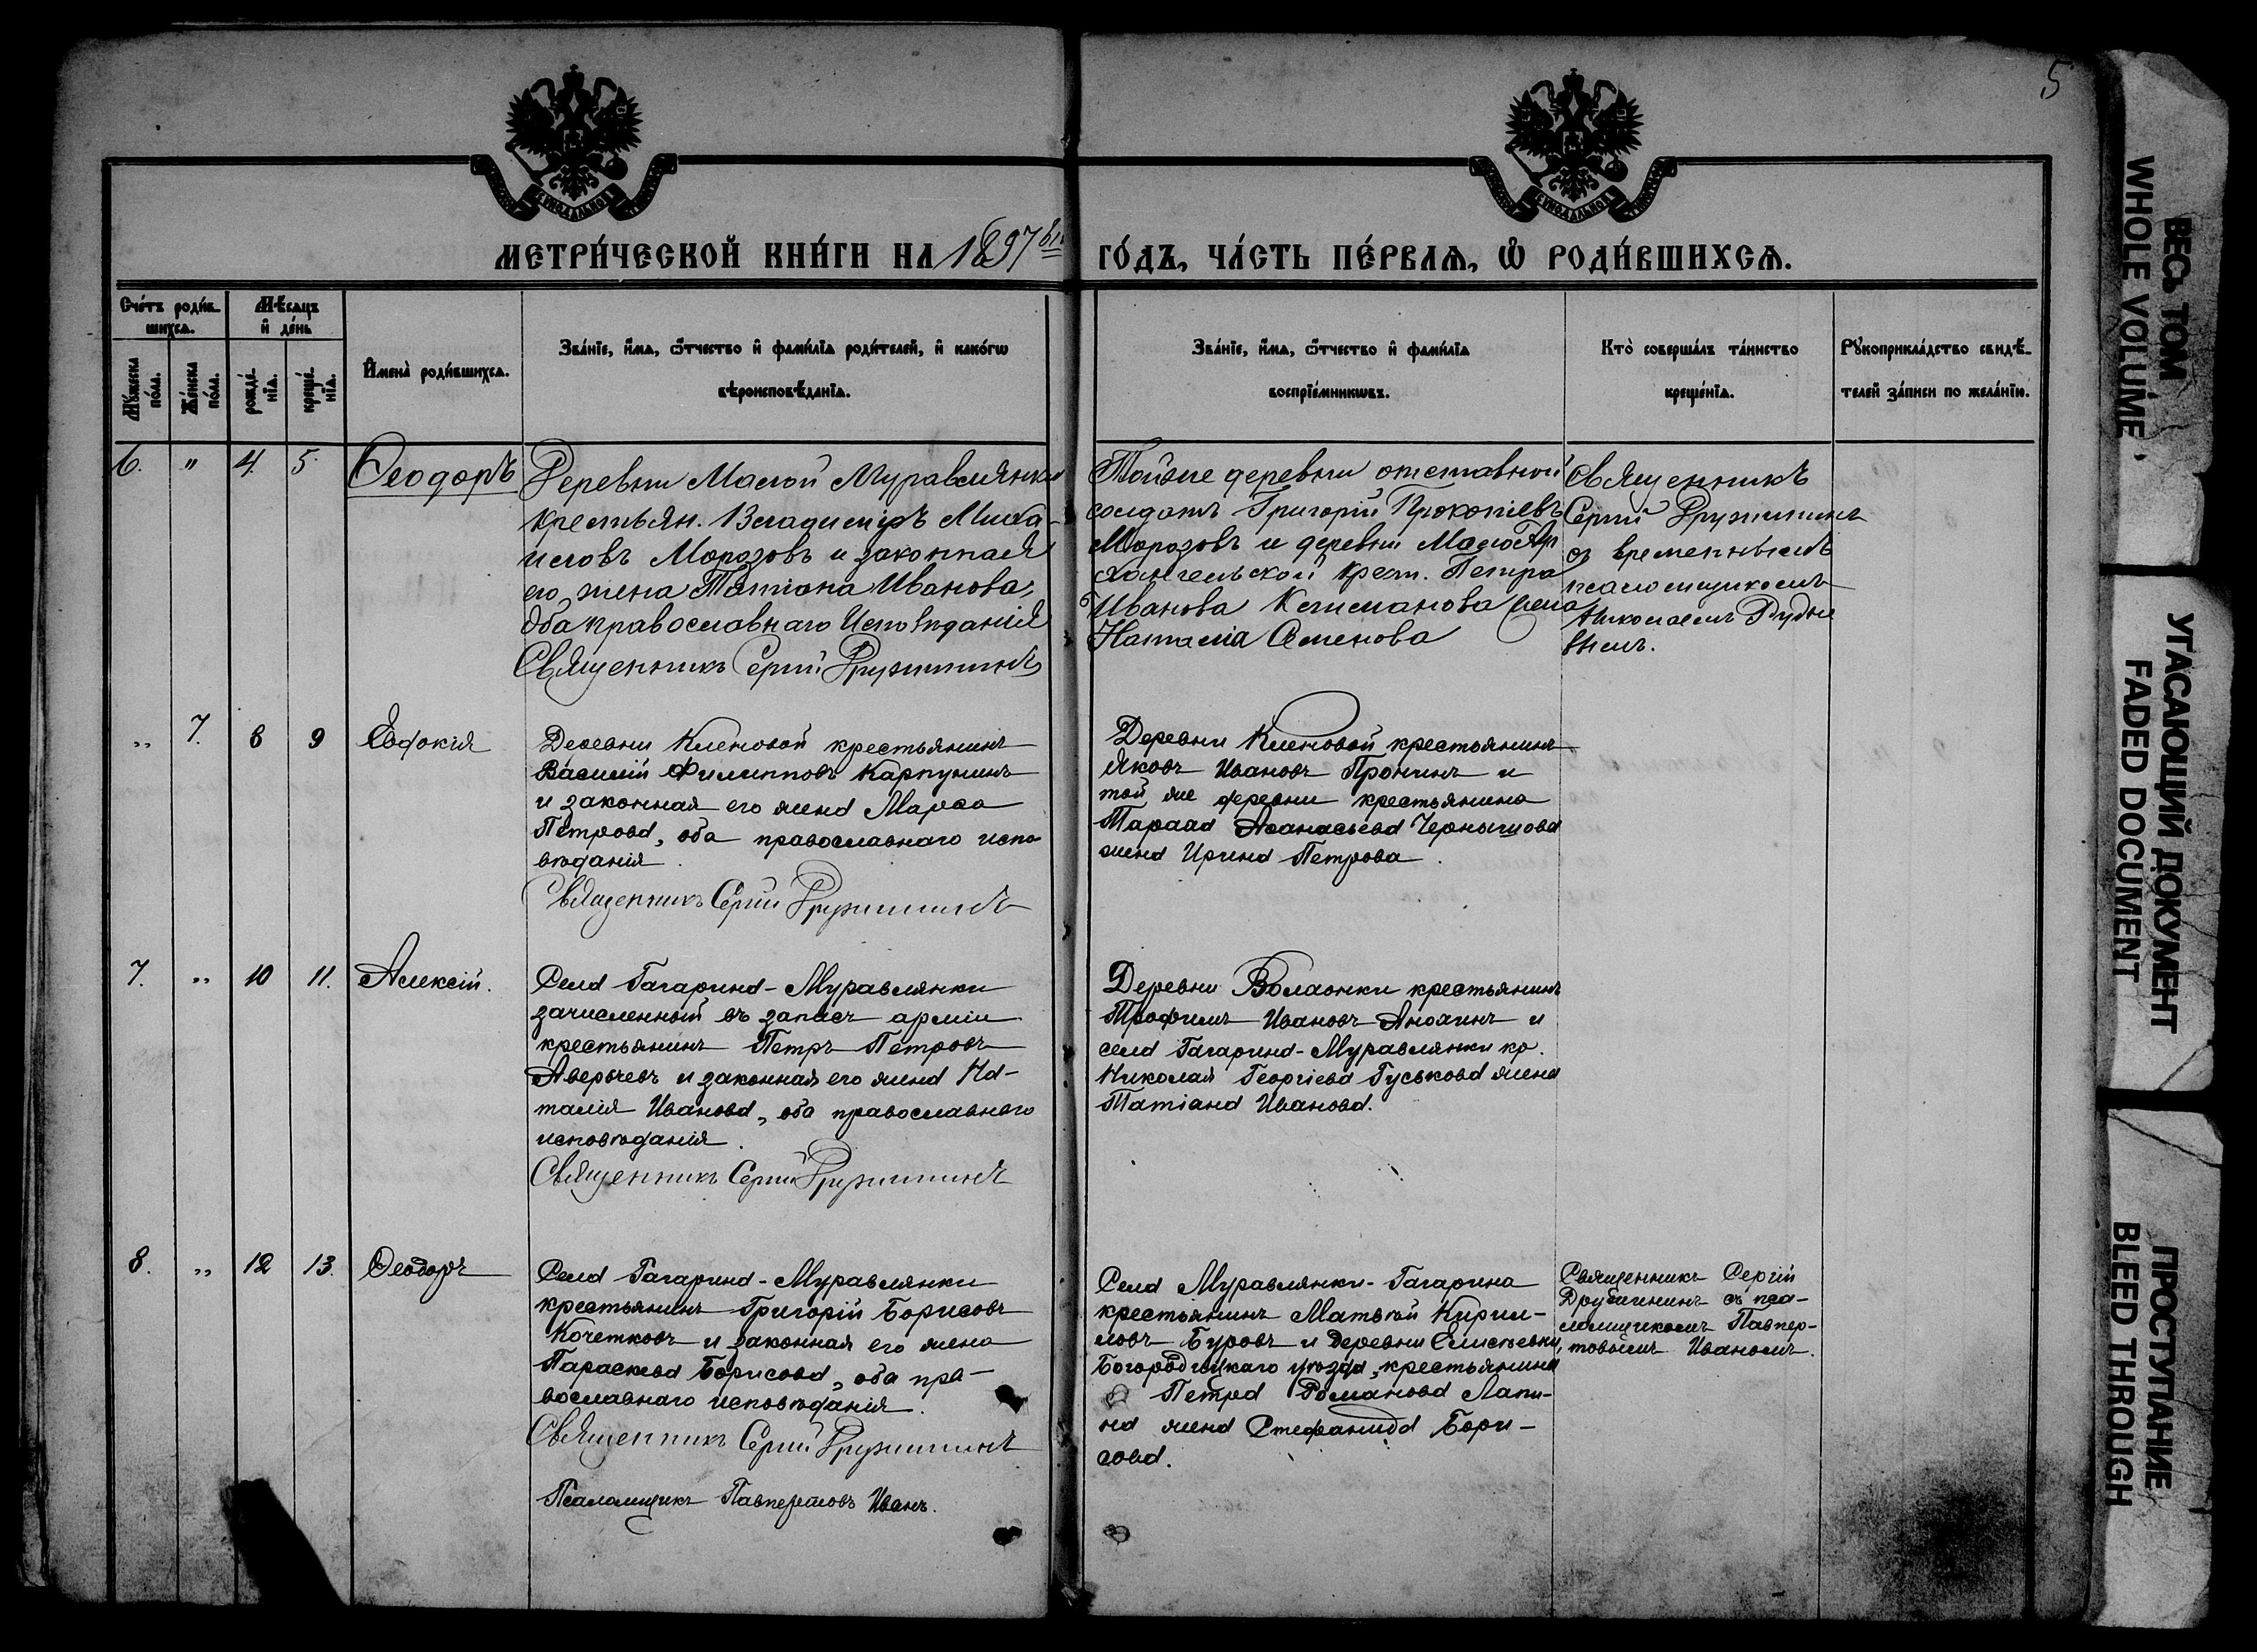 5
МЕТРИ́ЧЕСКОЙ КНИ́ГИ НА 1897ый
ГО́ДЪ, ЧА́СТЬ ПЕ́РВАѦ, Ѡ РОДИ́ВШИХСѦ.
Сче́тъ роди́в-
шихсѧ.
Мѣ́сѧцъ
и҆ де́нь
Мꙋ́жеска
по́ла.
Же́нска
по́ла.
рожде́-
нїѧ.
креще́-
нїѧ.
И҆мена̀ роди́вшихсѧ.
Зва́нїе, и҆́мѧ, ѻ҆́тчество и҆ фамі́лїѧ роди́телей, и҆ како́гѡ
вѣроисповѣ́данїѧ.
Зва́нїе, и҆́мѧ, ѻ҆́тчество и҆ фамі́лїѧ
воспрїе́мникѡвъ.
Кто̀ соверша́лъ та́инство
креще́нїѧ.
Рꙋкоприкла́дство свидѣ́-
телей за́писи по жела́нїю.
6. " 4. 5. Ѳеодоръ
Деревни Малой Муравлянки
крестьян. Владимиръ Миха-
иловъ Морозовъ и законная
его жена Татіана Иванова,
оба православнаго Исповѣданія
Священникъ Сергій Дружининъ
Тойже деревни отставной
солдатъ Григорій Прокопіевъ
Морозовъ и деревни Мало Ар
хангельской крест. Петра
Иванова Климанова жена
Наталія Семенова
Священникъ
Сергій Дружининъ
съ временнымъ
псаломщикомъ
Николаемъ Рудне
вымъ.
" 7. 8 9 Евдокія
Деревни Кленовой крестьянинъ
Василій Филипповъ Карпунинъ
и законная его жена Марѳа
Петрова, оба православнаго испо
вѣданія.
Священникъ Сергій Дружининъ
Деревни Кленовой крестьянинъ
Яковъ Ивановъ Пронинъ и
той же деревни крестьянина
Тараса Аѳанасьева Чернышова
жена Ирина Петрова.
7. " 10 11. Алексій.
Села Гагарина-Муравлянки
зачисленный въ запасъ арміи
крестьянинъ Петръ Петровъ
Аверьчевъ и законная его жена На-
талія Иванова, оба православнаго
исповѣданія.
Священникъ Сергій Дружининъ
Деревни Волаонки крестьянинъ
Трофимъ Ивановъ Анохинъ и
села Гагарина-Муравлянки кр.
Николая Георгіева Гуськова жена
Татіана Иванова.
8. " 12 13. Ѳеодоръ
Села Гагарина-Муравлянки
крестьянинъ Григорій Борисовъ
Кочетковъ и законная его жена
Параскева Борисова, оба пра-
вославнаго исповѣданія.
Священникъ Сергій Дружининъ
Псаломщикъ Павпертовъ Иванъ.
Села Муравлянки-Гагарина
крестьянинъ Матвѣй Кирил-
ловъ Буровъ и деревни Елисѣевки,
Богородицкаго уѣзда, крестьянина
Петра Романова Лапи-
на жена Стефанида Бори-
сова.
Священникъ Сергій
Дружининъ съ пса-
ломщикомъ Павпер-
товымъ Иваномъ.
ВЕСЬ ТОМ
WHOLE VOLUME
УГАСАЮЩИЙ ДОКУМЕНТ
FADED DOCUMENT
ПРОСТУПАНИЕ
BLEED THROUGH